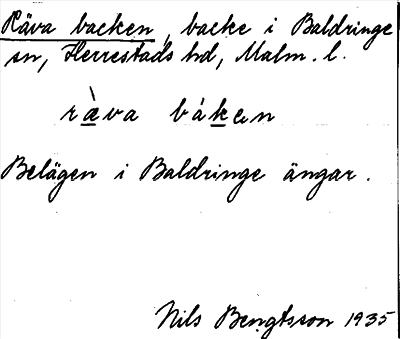 Räva backen, backe i Baldringe
sn, Herrestads hd, Malm. l.
ræ̀va báken
Belägen i Baldringe ängar.
Nils Bengtsson 1935